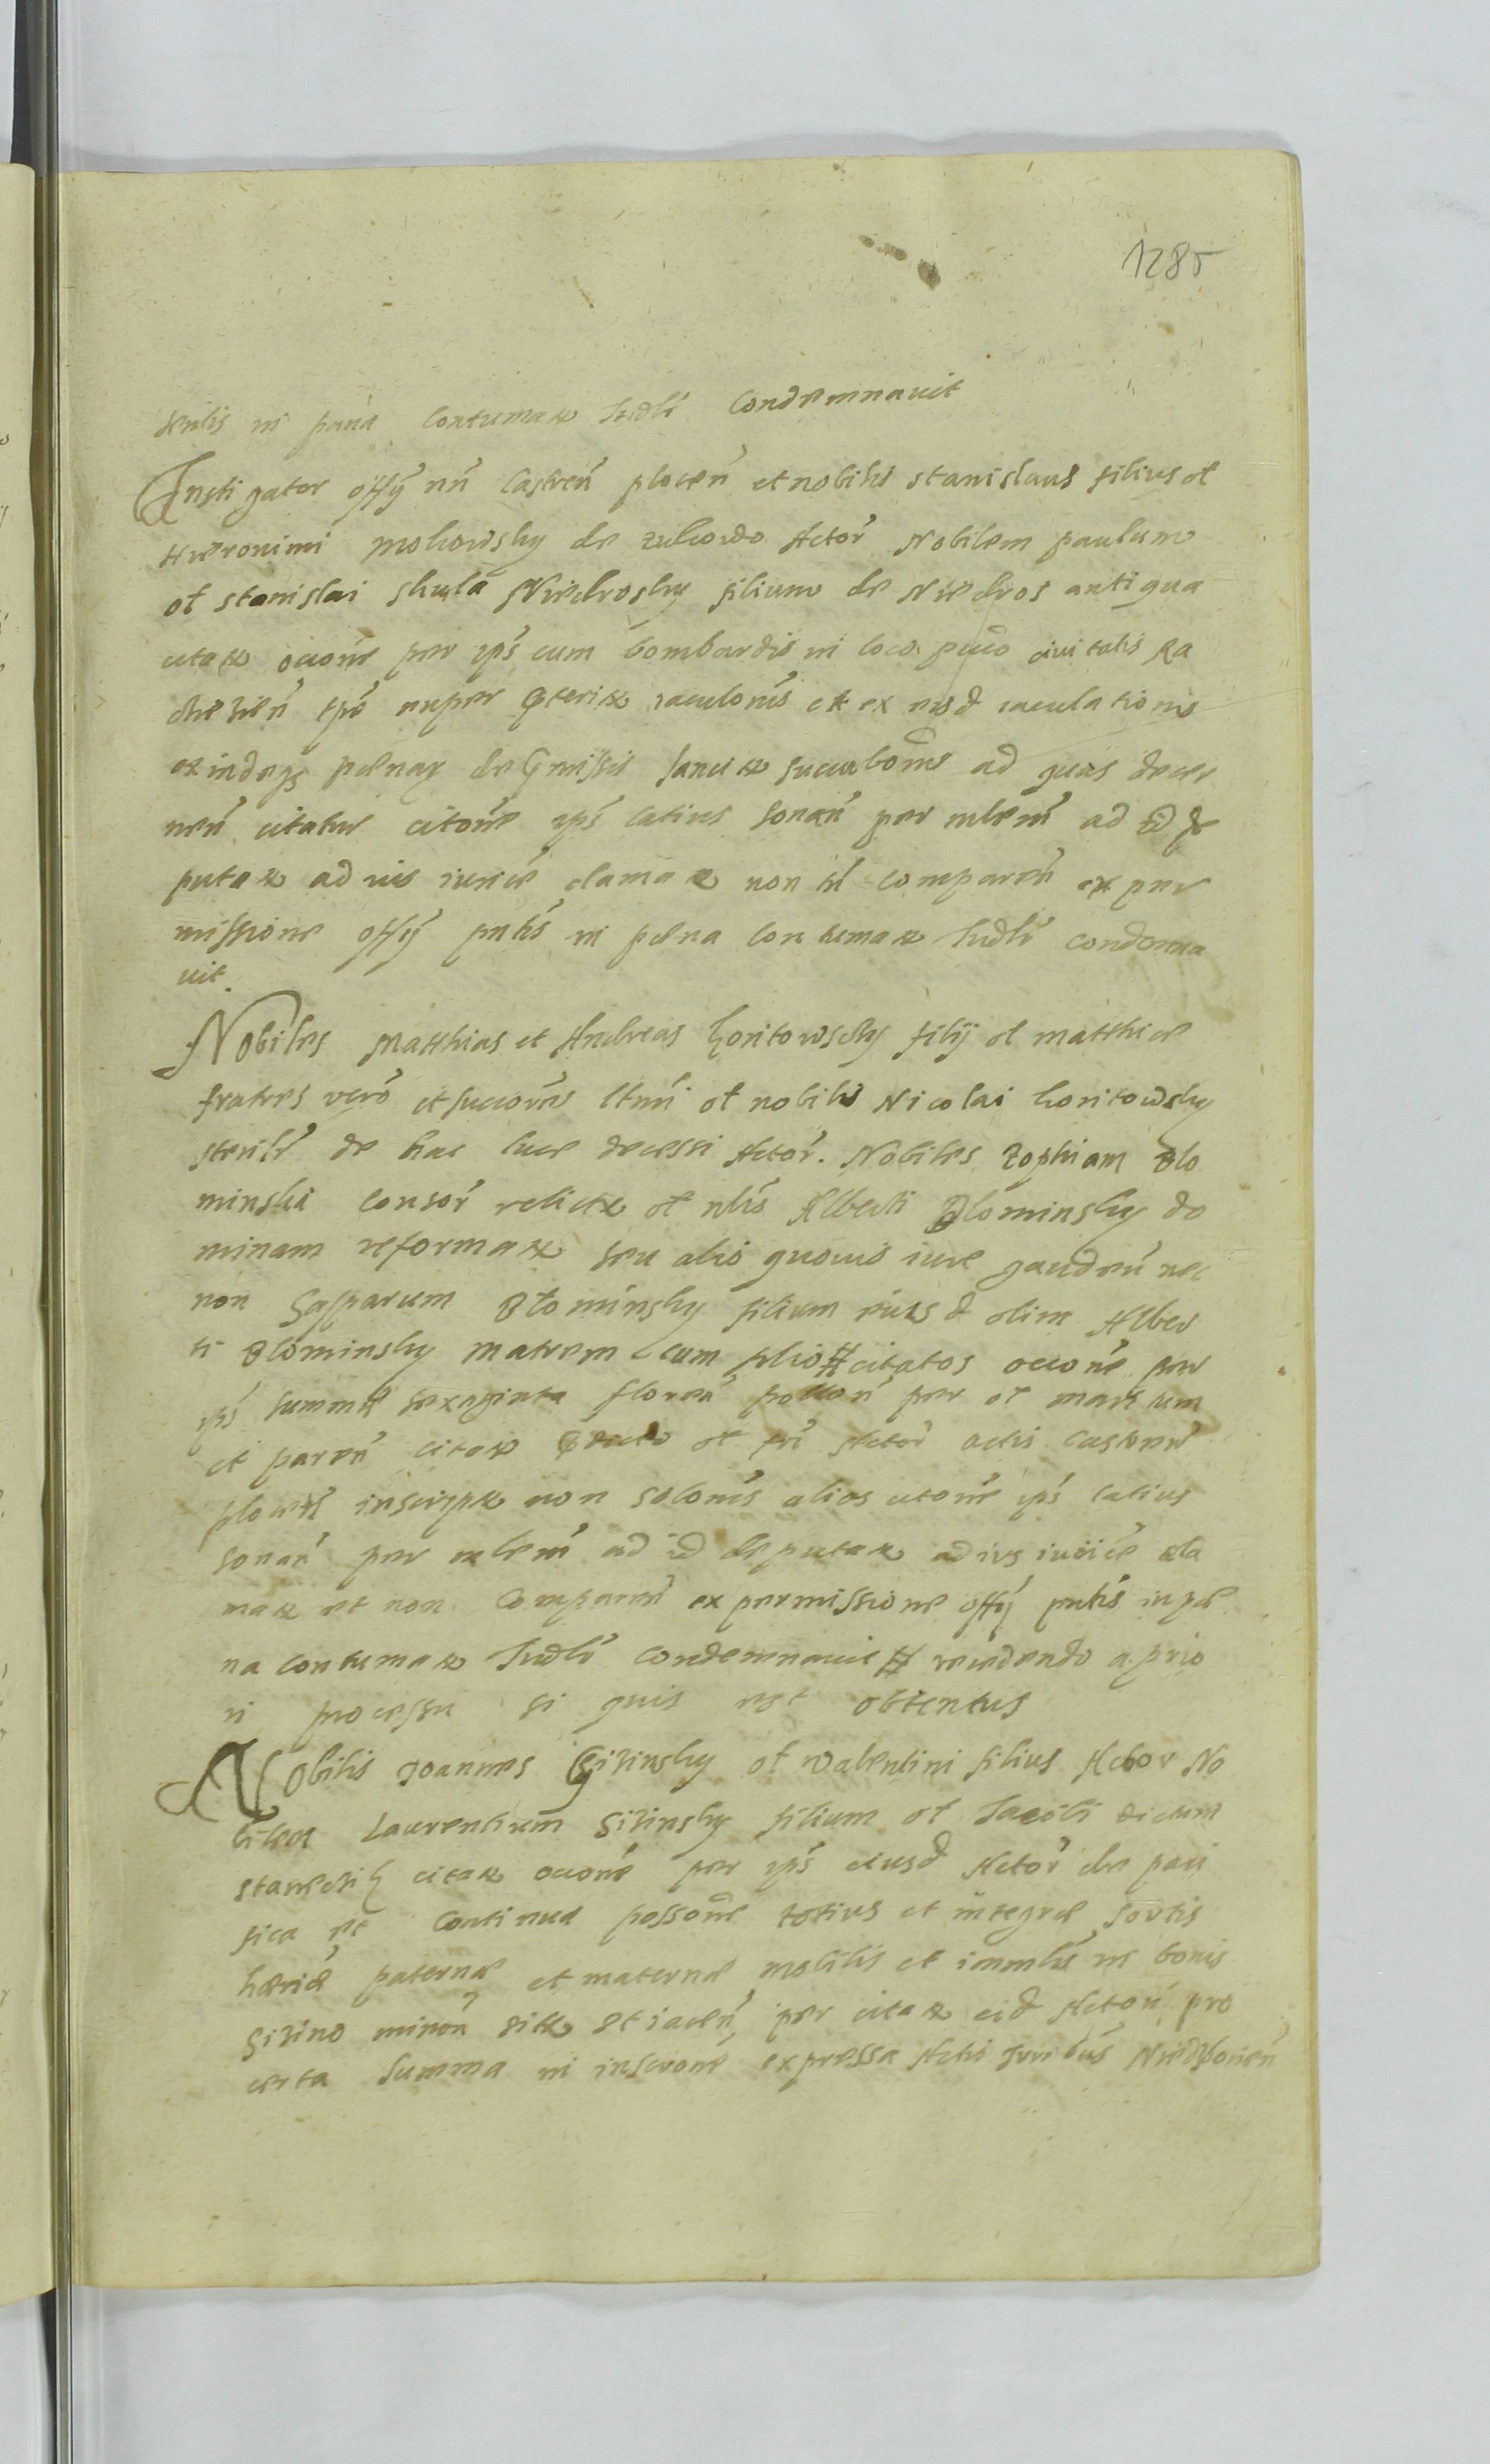 1285
in pœna contumax Iudlr Condemnauit
Instigator offÿ nri Castren plocen et nobilis Stanislaus filius ol
Hieronimi Mokowsky de Zukowo Actor Nobilem paulum
ol Stanislai Skula Niedrosky filium de Niedros antiqua
citat occone per ips cum bombardis in loco puco ciuitatis Ra
tpe nuper iaculonis et ex eiusd iaculationis
exindeqz pœnar sancit ad quas decer
nen citatur citone ips latius sonan per mlem ad id de
putat ad ius iurice clamat non tn comparen ex per
missione offÿ pntis in pœna contumax Iudlr condemna
uit
Nobiles Matthias et Andreas Koritowsky filÿ ol Matthiæ
fratres vero et succores ltmi ol nobilis Nicolai Koritowsky
sterilr de hac luce decessi Actor. Nobiles Zophiam Blo
minska Consor relict ol nlis Alberti Blominsky do
minam reformat seu alio quouis iure gauden nec
non Gasparum Blominsky filium eiusd olim Alber
ti Blominsky Matrem cum filio citatos occone per
ips summæ sexaginta floren pollon per ol maritum
et paren citat ol fri Actor actis Castren
plocen inscript non solonis alias citone ips latius
sonan per mlem ad id deputat ad ius iudice cla
mat et non Comparen ex permissione offÿ pntis in pœ
na contumax Iudlr condemnauit recedendo a prio
ri processu si quis est obtentus
Nobilis Joannes Gizinsky ol Valentini filius Actor No
bilem Laurentium Gizinsky filium ol Jacobi dictum
citat occone per ips eiusd Actor de paci
fica et Continua possone totius et integræ sortis
hæriæ paternæ et maternæ mobilis et immlis in bonis
Gizino minori sitæ et iacen per citat eid Actori pro
certa summa in inscrone expressa Actis